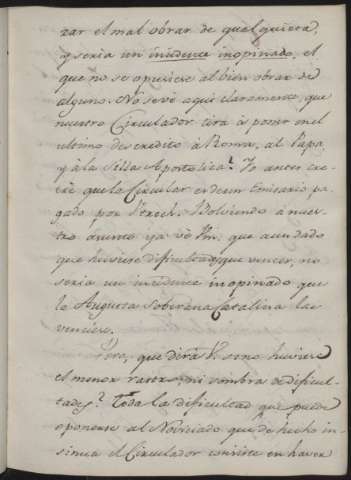 zar el mal obrar de quelquiera,
y seria un insidente inopinado, el
que no se opusiese al bien obrar de
alguno. No se vé aqui claramente, que
nuestro Circulador tira à poner en el
ultimo descredito à Roma, al Papa,
y à la Silla Apostolica? Yo antes cre-
eré que la Circular es de un Emisario pa-
gado por Utrech. Bolviendo à nues-
tro asunto ya vé Vm. que aun dado
que huviese dificultades que vencer, no
seria un incidente inopinado que
la Augusta Soberana Catalina las
venciese.
Pero, que dirà V. si no huviese
el menor rastro, ni sombra de dificul-
tades? Toda la dificultad que puede
oponerse al Noviciado que de hecho in-
sinua el Circulador consiste en haver